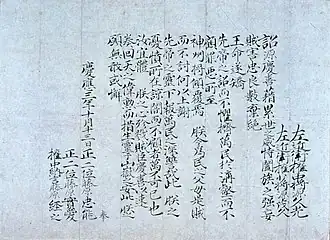 左近衛権中将源久光
左近衛権少将源茂久
詔源慶喜藉累世之威恃闔族之強妄
賊害忠良數棄絶
王命遂矯
先帝之詔而不懼擠萬民於溝壑而不
顧罪惡所至
神州将傾覆焉 朕今為民之父母是賊
而不討何以上謝
先帝之靈下報萬民之深讐哉此 朕之
憂憤所在諒闇而不顧者萬不可已也
汝宜體 朕之心殄戮賊臣慶喜以速
奏回天之偉勲而措生靈于山嶽之安此 朕
之願無敢或懈
慶應三年十月十三日 正二位藤原忠能
正二位藤原實愛
権中納言藤原經之
奉